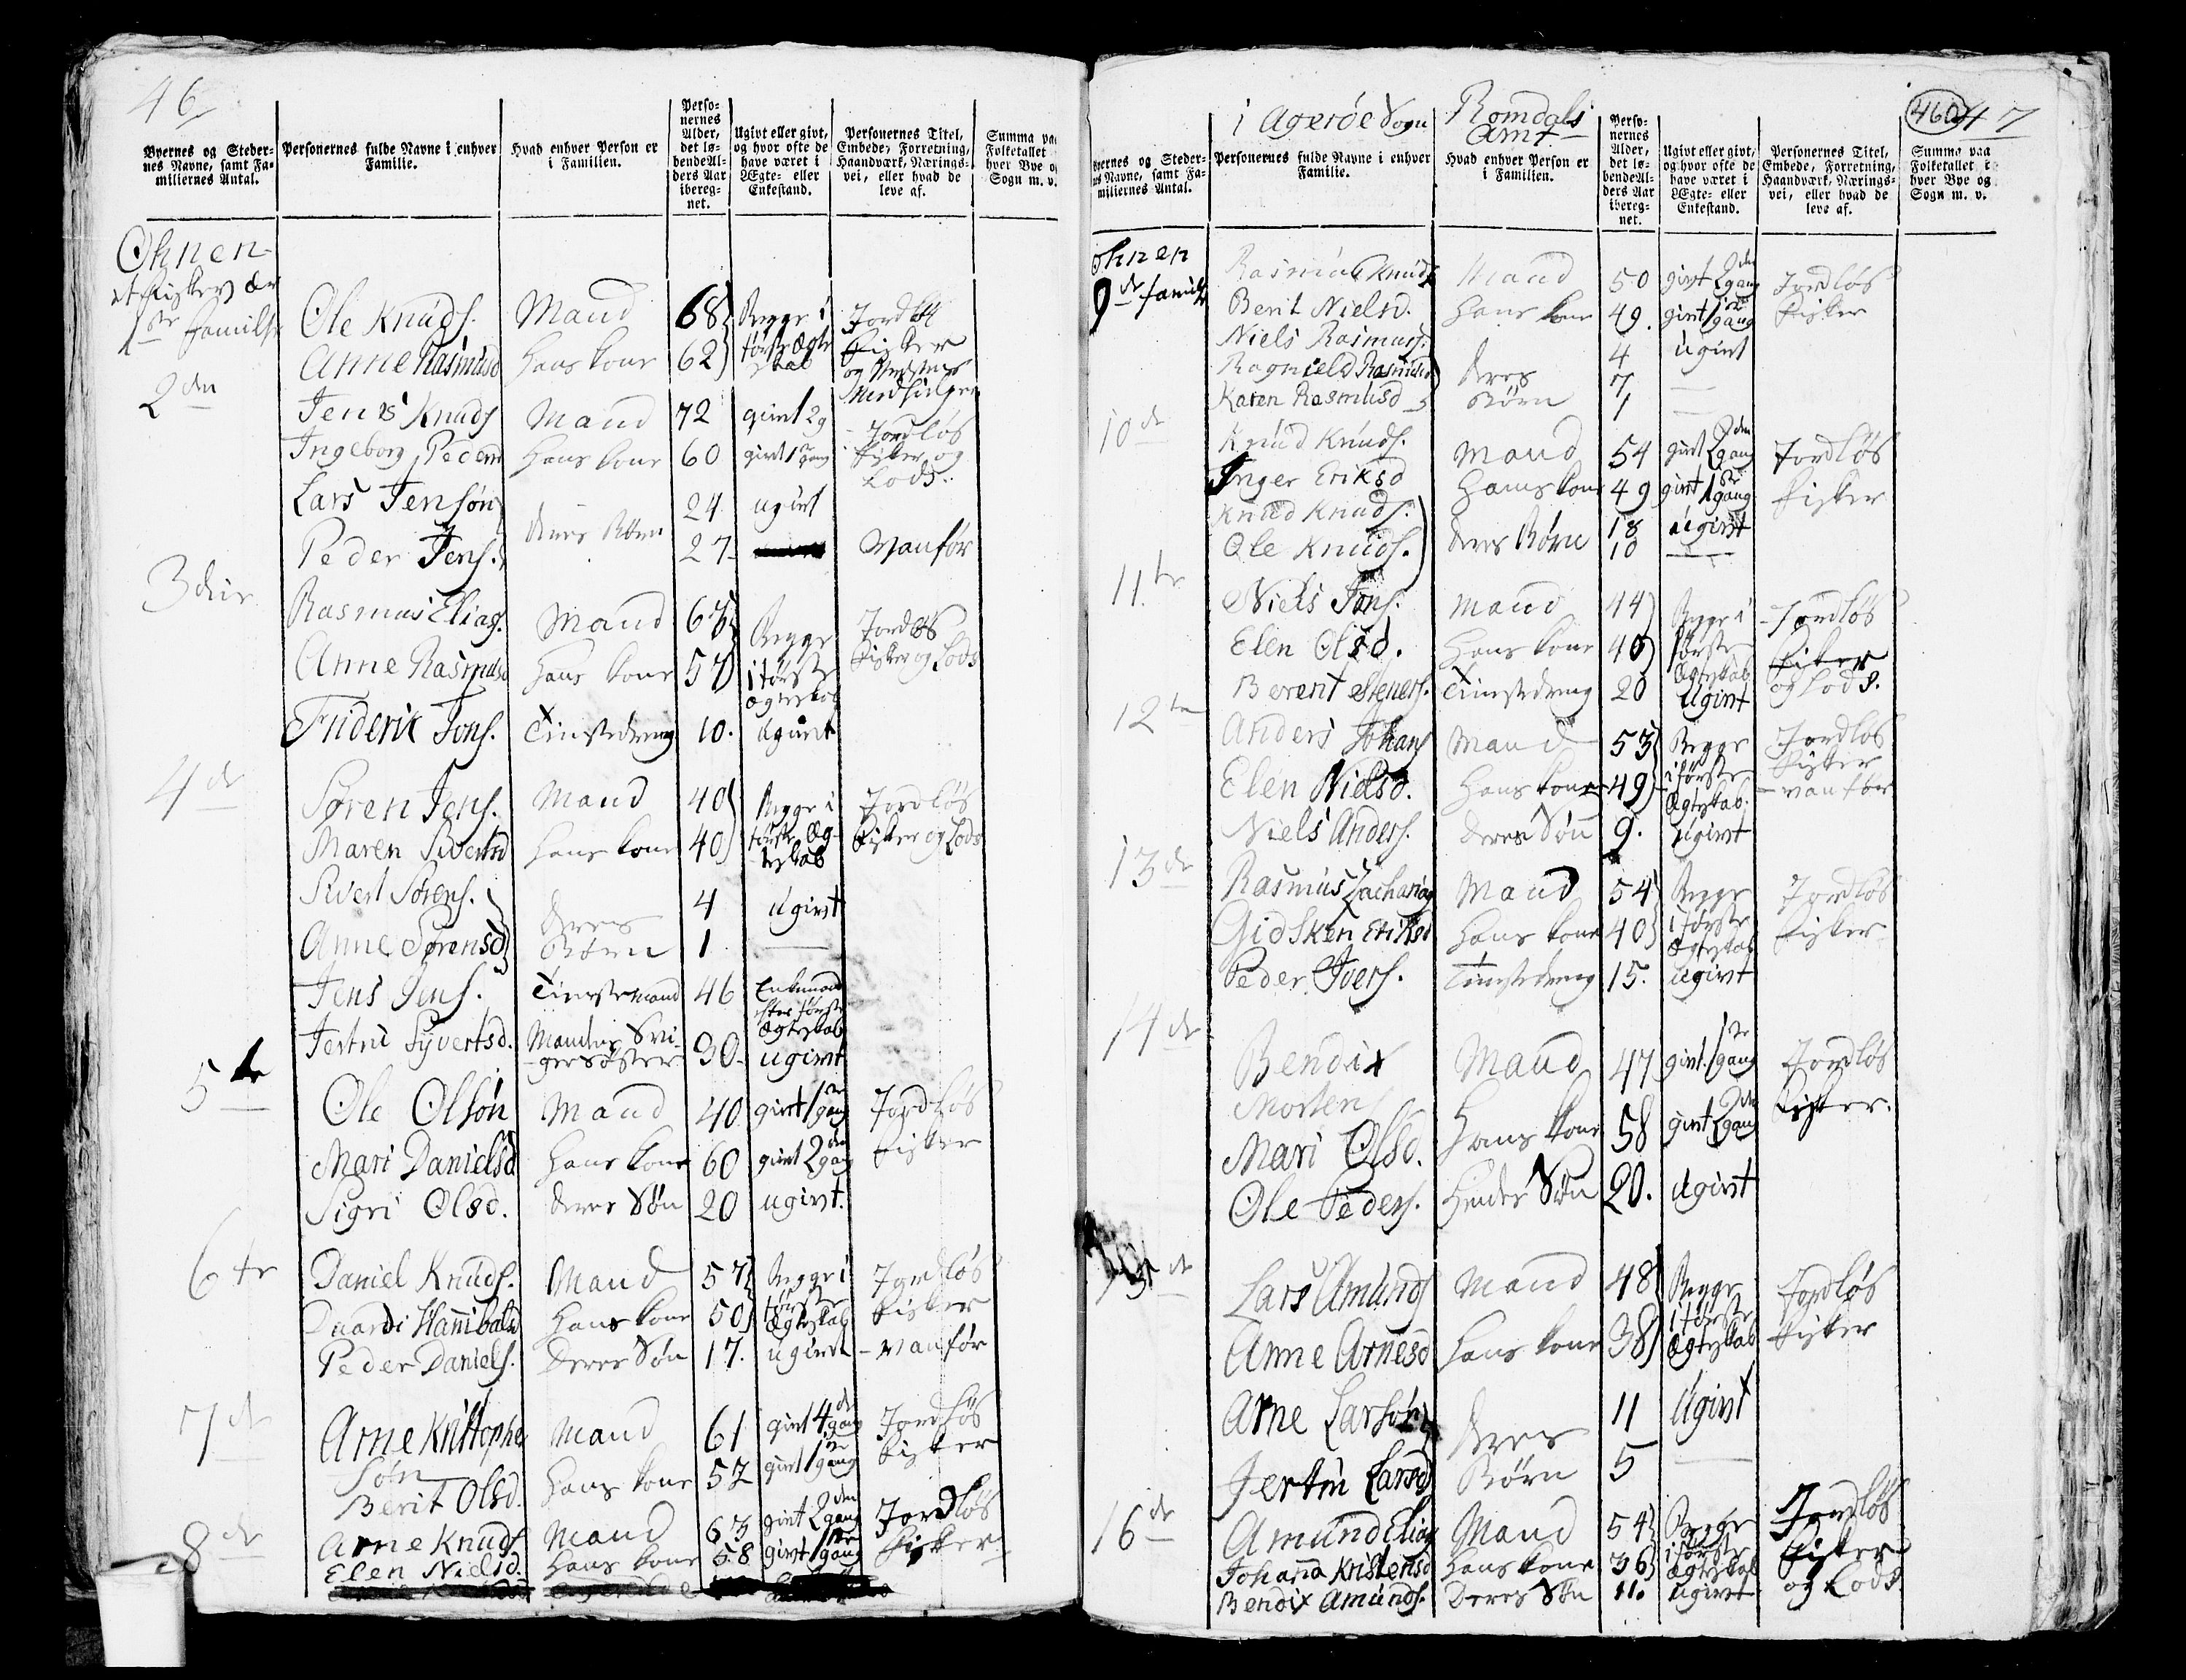 46
Byernes og Steder-
nes Navne, samt Fa-
miliernes Antal.
Personernes fulde Navne i enhver
Familie.
Hvad enhver Person er
i Familien.
Perso-
nernes
Alder,
det lø-
bendeAl-
ders Aar
ibereg-
net.
Ugivt eller givt,
og hvor ofte de
have været i
Ægte- eller
Enkestand.
Personernes Titel,
Embede, Forretning,
Haandværk, Nærings-
vei, eller hvad de
leve af.
Summa paa
Folketallet
hver Bye og
Sogn m. v.
Ohnen
et Fiskevær
1ste Familie Ole Knuds. Mand 68 Begge i Jordløs
Anne Rasmusd Hans kone 62 første Ægte skab Fisker og
2den Jens Knuds Mand 72 givt 2g Jordløs
Ingeborg Pedersd Hans kone 60 givt 1 gang Fisker og
Lods.
Lars Jensøn deres Børn 24 ugivt
Peder Jens. 27 Vanfør
3die Rasmus Elias. Mand 63 Begge Jordløs
Anne Rasmusd Hans kone 57 i første Ægteskab Fisker og Lods
Friderik Jons. Tienstedreng 10. Ugivt
4de Søren Jens. Mand 40 Begge i Jordløs
Maren Sivertsd Hans kone 40 første Æg-
teskab Fisker og Lods
Sivert Sørens. deres 4 Ugivt
Anne Sørensd Børn 1
Jens Jens. Tienstemand 46 Enkemand
efter første
Ægteskab
Jertru Syvertsd. Mandens Svi-
gersøster 30. ugivt
5te Ole Olsøn Mand 40 givt 1 gang Jordløs
Mari Danielsd Hans kone 60 givt 2den gang Fisker
Sigri Olsd. deres Søn 20 ugivt.
6te Daniel Knuds. Mand 57 Begge i Jordløs
Duardi Hannibalsd Hans kone 50 første Ægteskab Fisker
Peder Daniels. Deres Søn 17. ugivt - Vanfør
7de Arne Kristopher Mand 61 givt 4de gang Jordløs
Søn
Berit Olsd. Hans kone 52 givt 1 gang Fisker
8de Arne Knuds. Mand 63 givt 2den gang Jordløs
Elen Nielsd. Hans kone 58 givt 1 gang Fisker
i Agerøe Sogn Romdals
Amt
460
47
Byernes og Steder-
nes Navne, samt Fa-
miliernes Antal.
Personernes fulde Navne i enhver
Familie.
Hvad enhver Person er
i Familien.
Perso-
nernes
Alder,
det lø-
bendeAl-
ders Aar
ibereg-
net.
Ugivt eller givt,
og hvor ofte de
have været i
Ægte- eller
Enkestand.
Personernes Titel,
Embede, Forretning,
Haandværk, Nærings-
vei, eller hvad de
leve af.
Summa paa
Folketallet i
hver Bye og
Sogn m. v.
Ohnen
9de Familie Rasmus Knuds Mand 50 givt 2den gang Jordløs
Berit Nielsd. Hans kone 49. givt 1 gang Fisker
Niels Rasmuss. 4 ugivt
Ragnield Rasmusd deres 7
Karen Rasmusd Børn 1
10de Knud Knuds. Mand 54 givt 2den gang Jordløs
Inger Eriksd Hans kone 49 givt 1 gang Fisker
Knud Knuds. 18 ugivt
Ole Knuds. deres Børn 10
11te Niels Jons. Mand 44 Begge i Jordløs
Elen Olsd. Hans kone 40 første Ægteskab Fisker
Berent Steners. Tienstedreng 20 Ugivt og Lods.
12te Anders Johans Mand 53 Begge Jordløs
Fisker
Elen Nielsd. Hans kone 49 i første Ægteskab. - vanfør
Niels Anders. deres Søn 9. Ugivt
13de Rasmus Zacharias Mand 54 Begge Jordløs
Gidsken Eriksd Hans kone 40 i første Ægteskab Fisker
Peder Ivers. Tienstedreng 15. Ugivt
14de Bendix Mand 47 givt 1 gang Jordløs
Mortens
Mari Olsd. Hans kone 58 givt 2den gang Fisker.
Ole Peders. Hendes Søn 20. Ugivt
Lars Amunds Mand 48 Begge Jordløs
Anne Arnesd Hans kone 38 i første Ægteskab Fisker
Arne Larsøn deres 11 Ugivt
Jertru Larsd Børn 5
16de Amund Elias Mand 54 Begge Jordløs
Johana Kristensd Hans kone 36 i første Ægteskab Fisker
Bendix Amunds. Deres Søn 11. ugivt og Lods